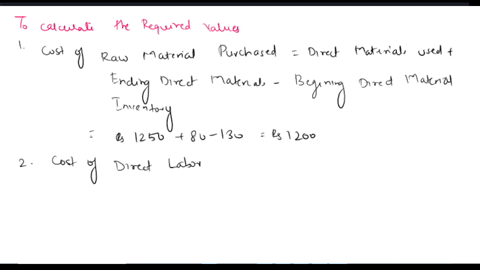 To calculate the Required values
1. Cost of Raw Material Purchased = Direct Materials used +
Ending Direct Materials - Begining Direct Material
Inventory
= ₨ 1250 + 80 - 130 = ₨ 1200
2. Cost of Direct Labor